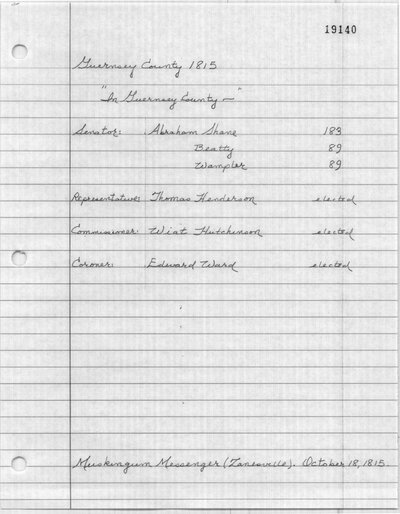 19140
Guernsey County 1815
"In Guernsey County—"
Senator: Abraham Shane 183
Beatty 89
Wampler 89
Representative: Thomas Henderson elected
Commissioner: Wiat Hutchinson elected
Coroner: Edward Ward elected
Muskingum Messenger (Zanesville). October 18, 1815.